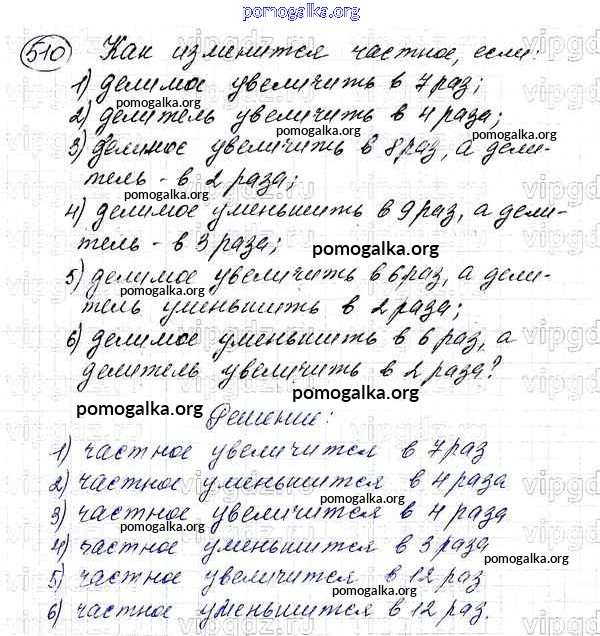 pomogalka.org
510 Как изменится частное, если:
1) делимое увеличить в 7 раз;
pomogalka.org
2) делитель увеличить в 4 раза;
pomogalka.org
3) делимое увеличить в 8 раз, а дели-
тель - в 2 раза;
4) делимое уменьшить в 9 раз, а дели-
тель - в 3 раза; pomogalka.org
5) делимое увеличить в 6 раз, а дели-
pomogalka.org
тель уменьшить в 2 раза;
6) делимое уменьшить в 6 раз, а
делитель увеличить в 2 раза?
pomogalka.org pomogalka.org
Решение:
1) частное увеличится в 7 раз
pomogalka.org
2) частное уменьшится в 4 раза
pomogalka.org
3) частное увеличится в 4 раза
pomogalka.org
4) частное уменьшится в 3 раза
pomogalka.org
5) частное увеличится в 12 раз
pomogalka.org
6) частное уменьшится в 12 раз.
pomogalka.org